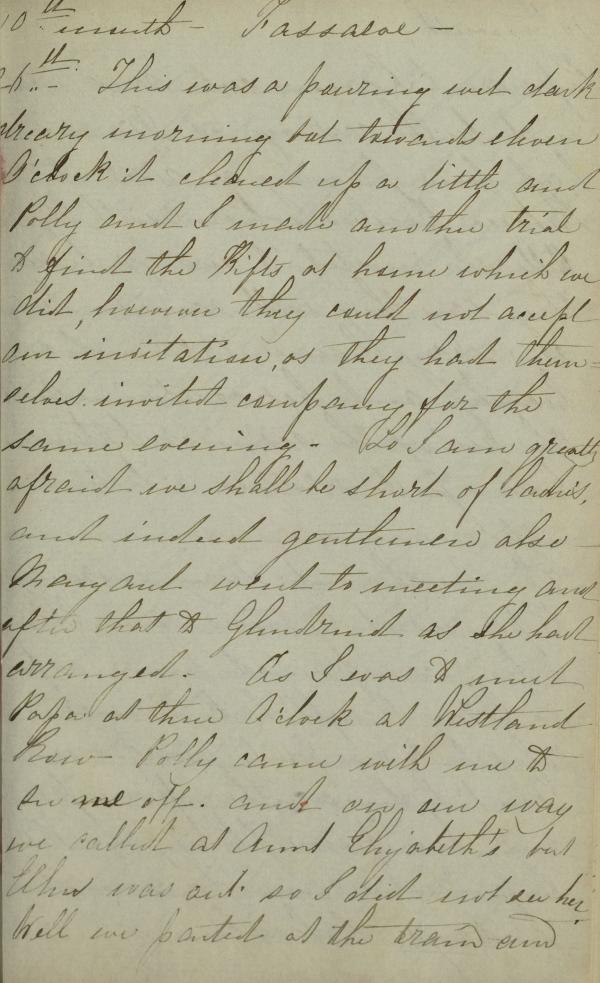 10th month - Fassaroe -
26th.. - This was a pouring wet dark
dreary morning but towards eleven
O'clock it cleared up a little and
Polly and I made another trial
to find the Fifts at home which we
did, however they could not accept
our invitation, as they had them=
selves invited company for the
same evening - So I am greatly
afraid we shall be short of ladies,
and indeed gentlemen also -
Margaret went to meeting and
after that to Glendruid as she had
arranged. - As I was to meet
Papa at three O'clock at Westland
Row - Polly came with me to
see me off. and on our way
we called at Aunt Elizabeth's but
Ellen was out so I did not see her
Well we parted at the train and